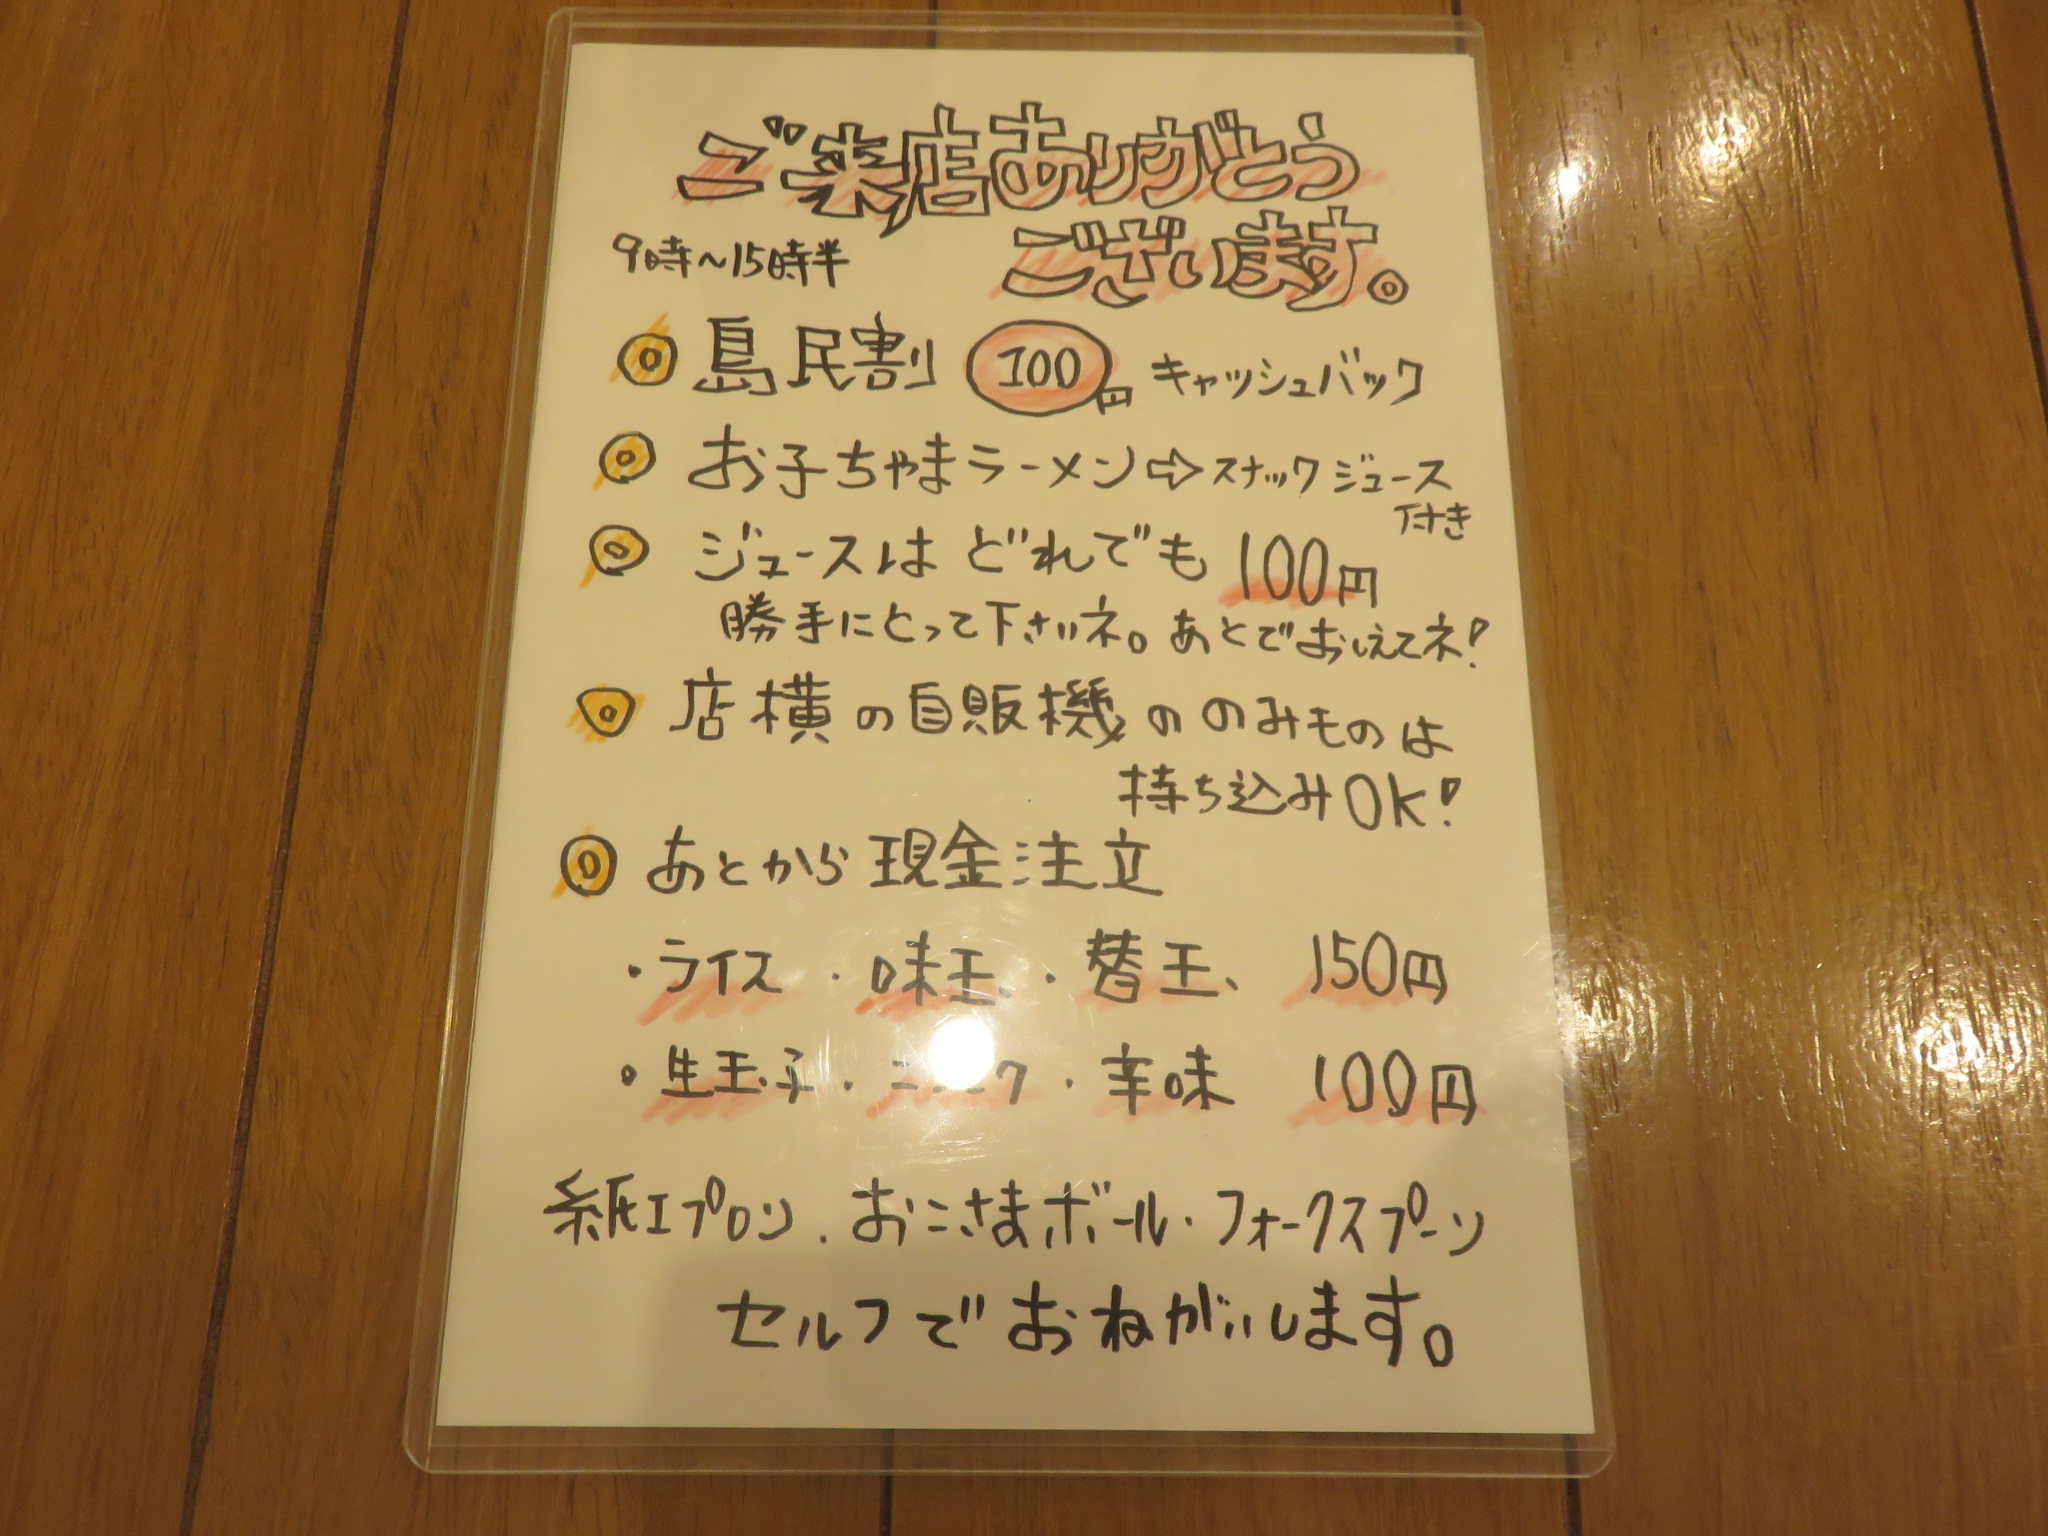 ご来店ありがとう
ございます。
9時～15時半
◎ 島民割 100円 キャッシュバック
◎ お子ちゃまラーメン⇨スナックジュース
付き
◎ ジュースは どれでも 100円
勝手にとって下さいネ。あとでおしえてネ!
◎ 店横の自販機ののみものは
持ち込みOK!
◎ あとから現金注立
・ライス ・味玉 ・替玉 150円
・生玉子 ・ニ ク ・辛味 100円
紙エプロン．おこさまボール・フォークスプーン
セルフでおねがいします。